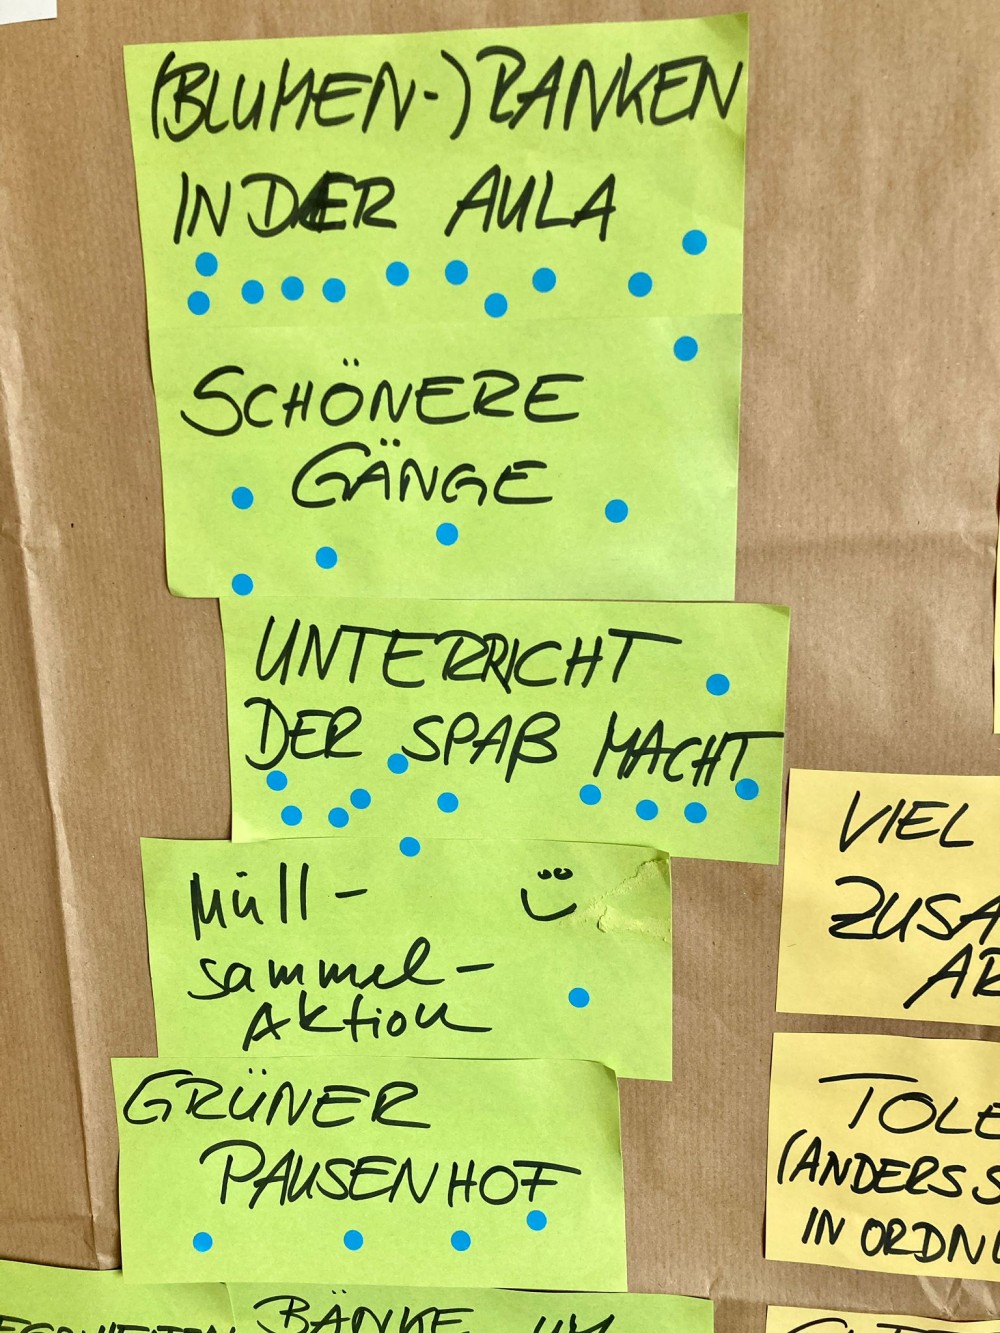 (BLUMEN-) RANKEN
IN DER AULA
SCHÖNERE
GÄNGE
UNTERRICHT
DER SPAß MACHT
Müll-
sammel-
Aktion
GRÜNER
PAUSENHOF
BÄNKE
VIEL
ZUSA
AR
TOLE
(ANDERS S
IN ORDNU